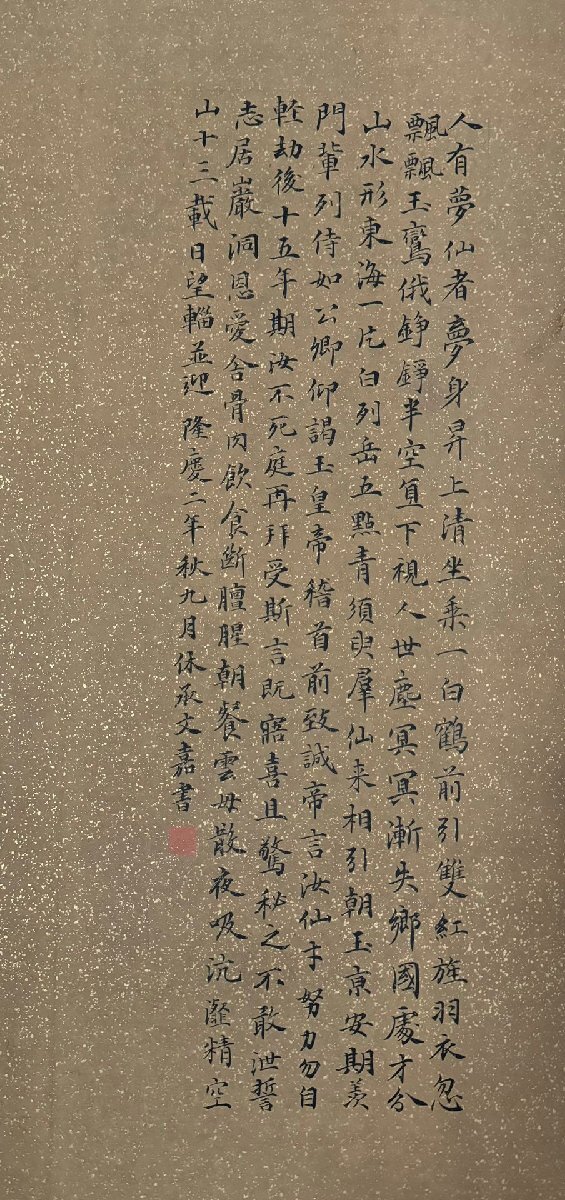 人有夢仙者夢身昇上清坐乘一白鶴前引雙紅旌羽衣忽
飄飄玉鸞俄錚錚半空直下視人世塵冥冥漸失鄉國處才分
山水形東海一片白列岳五點青須臾羣仙来相引朝玉京安期羨
門輩列侍如公卿仰謁玉皇帝稽首前致誠帝言汝仙才努力勿自
軽劫後十五年期汝不死庭再拜受斯言既寤喜且驚秘之不敢泄誓
志居巖洞恩愛舍骨肉飲食斷膻腥朝餐雲母散夜吸沆瀣精空
山十三載日望輜並迎 隆慶二年秋九月休承文嘉書